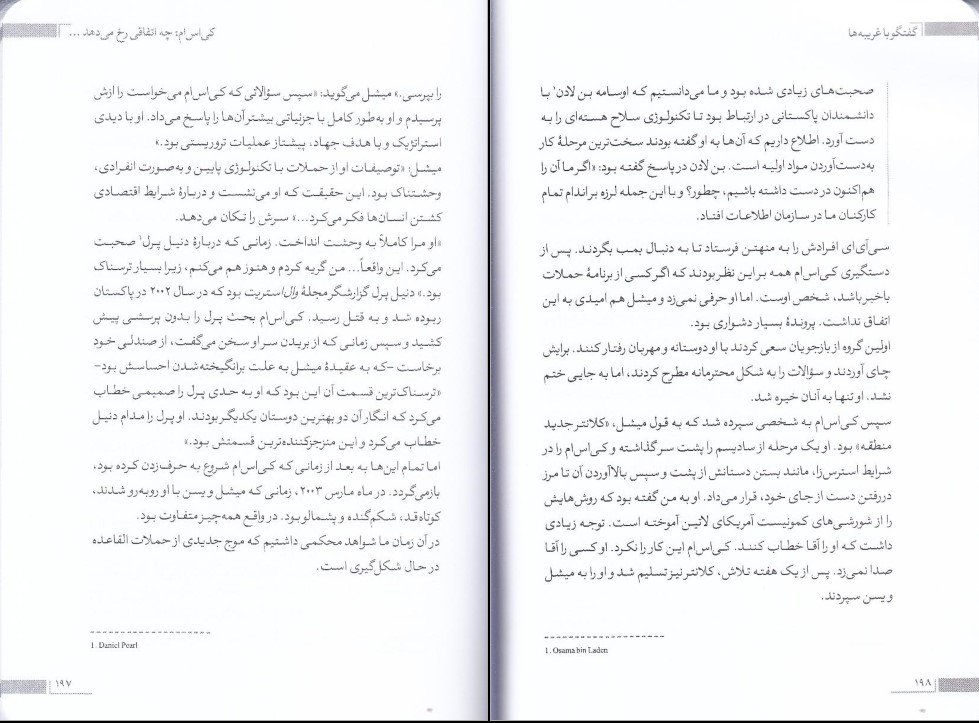 کی‌اس‌ام؛ چه اتفاقی رخ می‌دهد ...
را بپرسی.» میشل می‌گوید: «سپس سؤالاتی که کی‌اس‌ام می‌خواست را ازش
پرسیدم و او به‌طور کامل با جزئیاتی بیشتر آن‌ها را پاسخ می‌داد. او با دیدی
استراتژیک و با هدف جهاد، پیشتاز عملیات تروریستی بود.»
میشل: «توصیفات او از حملات با تکنولوژی پایین و به‌صورت انفرادی،
وحشتناک بود. این حقیقت که او می‌نشست و دربارهٔ شرایط اقتصادی
کشتن انسان‌ها فکر می‌کرد...» سرش را تکان می‌دهد.
«او مرا کاملاً به وحشت انداخت. زمانی که دربارهٔ دنیل پرل¹ صحبت
می‌کرد. این واقعاً... من گریه کردم و هنوز هم می‌کنم، زیرا بسیار ترسناک
بود.» دنیل پرل گزارشگر مجلهٔ وال‌استریت بود که در سال ۲۰۰۲ در پاکستان
ربوده شد و به قتل رسید. کی‌اس‌ام بحث پرل را بدون پرسشی پیش
کشید و سپس زمانی که از بریدن سر او سخن می‌گفت، از صندلی خود
برخاست -که به عقیدهٔ میشل به علت برانگیخته‌شدن احساسش بود-
«ترسناک‌ترین قسمت آن این بود که او به حدی پرل را صمیمی خطاب
می‌کرد که انگار آن دو بهترین دوستان یکدیگر بودند. او پرل را مدام دنیل
خطاب می‌کرد و این منزجرکننده‌ترین قسمتش بود.»
اما تمام این‌ها به بعد از زمانی که کی‌اس‌ام شروع به حرف‌زدن کرده بود،
بازمی‌گردد. در ماه مارس ۲۰۰۳، زمانی که میشل و یسن با او روبه‌رو شدند،
کوتاه‌قد، شکم‌گنده و پشمالو بود. در واقع همه‌چیز متفاوت بود.
در آن زمان ما شواهد محکمی داشتیم که موج جدیدی از حملات القاعده
در حال شکل‌گیری است.
1. Daniel Pearl
۱۹۷
گفتگو با غریبه‌ها
صحبت‌های زیادی شده بود و ما می‌دانستیم که اوسامه بن لادن¹ با
دانشمندان پاکستانی در ارتباط بود تا تکنولوژی سلاح هسته‌ای را به
دست آورد. اطلاع داریم که آن‌ها به او گفته بودند سخت‌ترین مرحلهٔ کار
به‌دست‌آوردن مواد اولیه است. بن لادن در پاسخ گفته بود: «اگر ما آن را
هم‌اکنون در دست داشته باشیم، چطور؟ و با این جمله لرزه بر اندام تمام
کارکنان ما در سازمان اطلاعات افتاد.
سی‌آی‌ای افرادش را به منهتن فرستاد تا به دنبال بمب بگردند. پس از
دستگیری کی‌اس‌ام همه بر این نظر بودند که اگر کسی از برنامهٔ حملات
باخبر باشد، شخص اوست. اما او حرفی نمی‌زد و میشل هم امیدی به این
اتفاق نداشت. پروندهٔ بسیار دشواری بود.
اولین گروه از بازجویان سعی کردند با او دوستانه و مهربان رفتار کنند. برایش
چای آوردند و سؤالات را به شکل محترمانه مطرح کردند، اما به جایی ختم
نشد. او تنها به آنان خیره شد.
سپس کی‌اس‌ام به شخصی سپرده شد که به قول میشل، «کلانتر جدید
منطقه» بود. او یک مرحله از سادیسم را پشت سر گذاشته و کی‌اس‌ام را در
شرایط استرس‌زا، مانند بستن دستانش از پشت و سپس بالاآوردن آن تا مرز
دررفتن دست از جای خود، قرار می‌داد. او به من گفته بود که روش‌هایش
را از شورشی‌های کمونیست آمریکای لاتین آموخته است. توجه زیادی
داشت که او را آقا خطاب کنند. کی‌اس‌ام این کار را نکرد. او کسی را آقا
صدا نمی‌زد. پس از یک هفته تلاش، کلانتر نیز تسلیم شد و او را به میشل
و یسن سپردند.
1. Osama bin Laden
۱۹۸